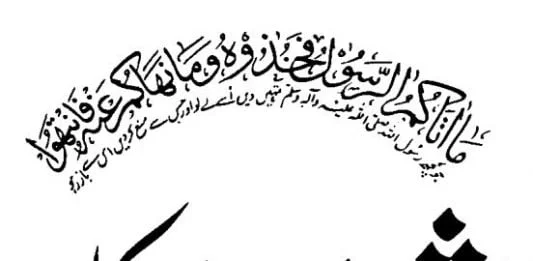 مَا اٰتَاكُمُ الرَّسُوْلُ فَخُذُوْهُ وَمَا نَهَاكُمْ عَنْهُ فَانْتَهُوْا
جو کچھ رسول اللہ صلی اللہ علیہ وآلہ وسلم تمہیں دیں اسے لے لو اور جس سے منع کر دیں اس سے باز رہو